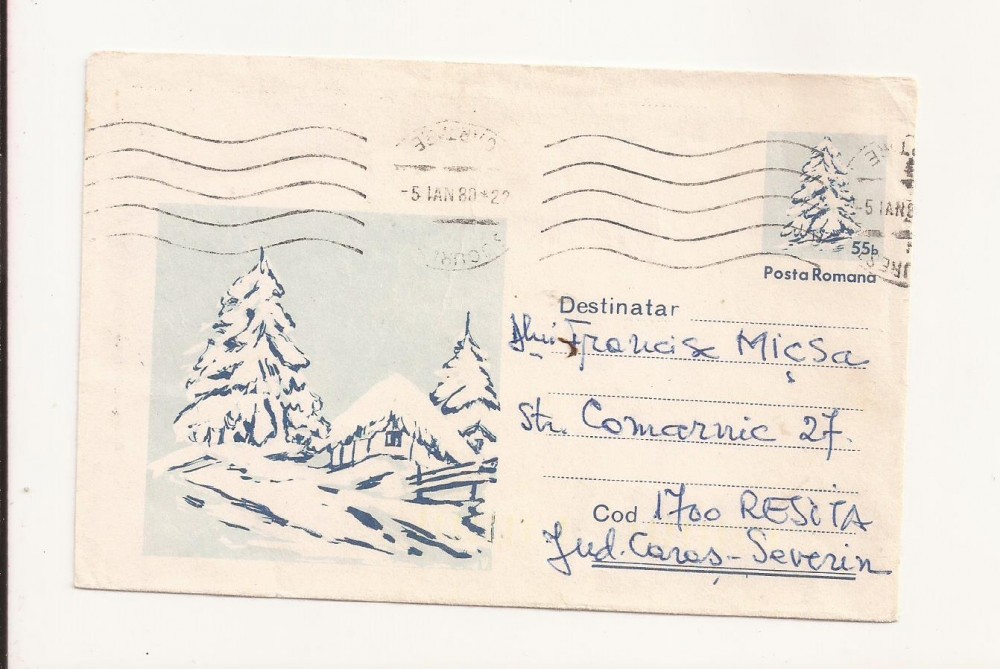 -5 IAN 80 * 22
-5 IAN 8
55b
Posta Romana
Destinatar
Dlui Francisc Micșa
Str. Comarnic 27.
Cod 1700 RESITA
Jud. Caraș-Severin